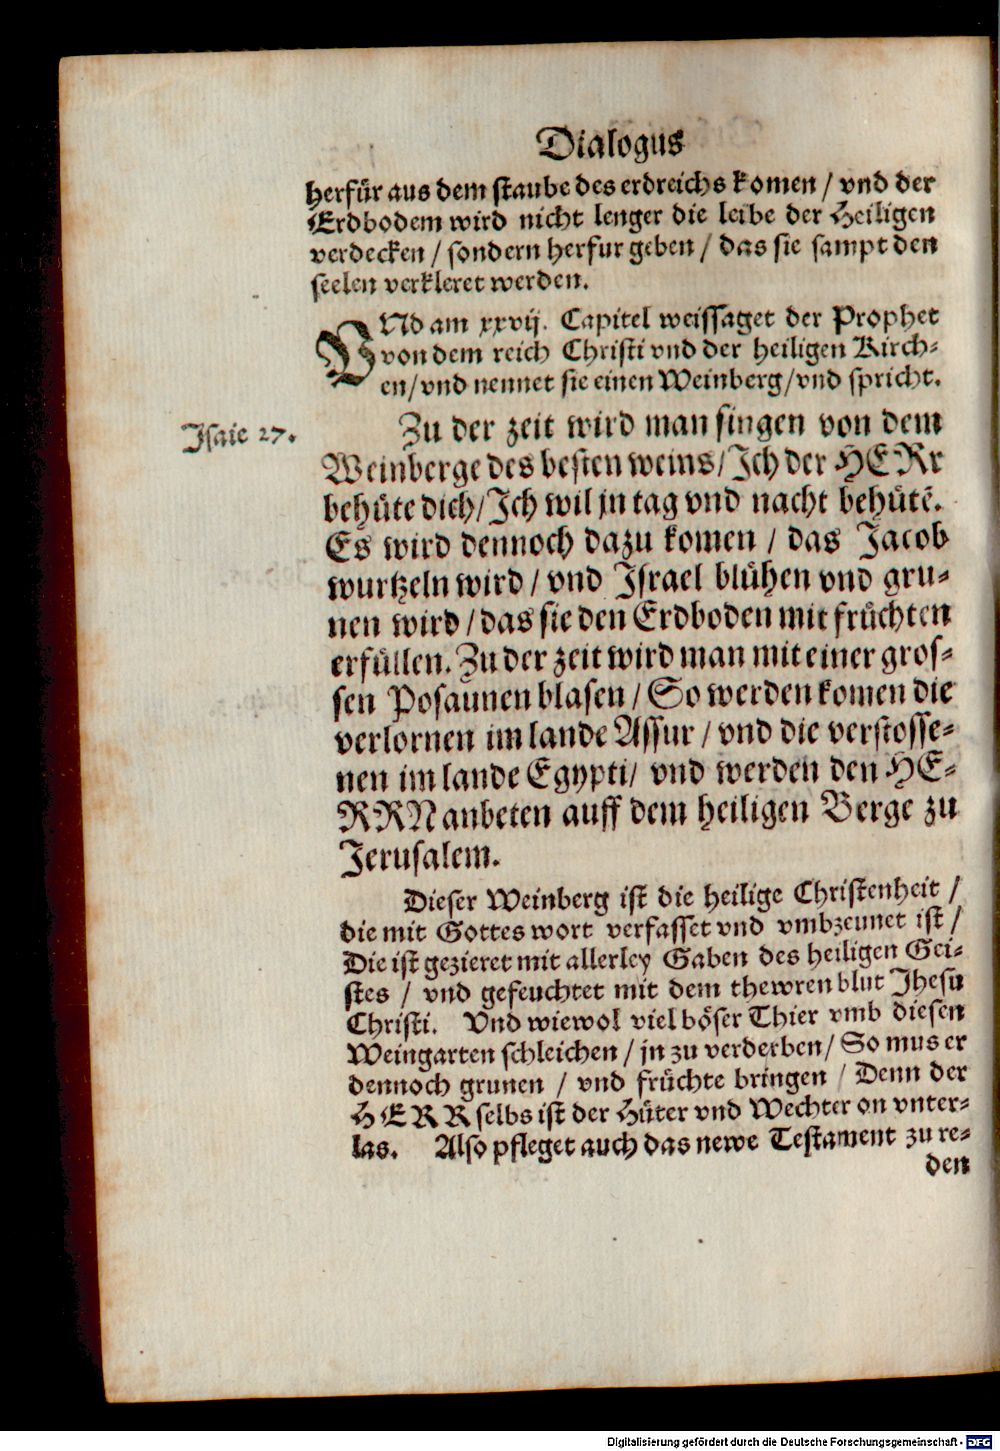 Dialogus
herfür aus dem staube des erdreichs komen / vnd der
Erdbodem wird nicht lenger die leibe der Heiligen
verdecken / sondern herfur geben / das sie sampt den
seelen verkleret werden.
VNd am xxvij. Capitel weissaget der Prophet
von dem reich Christi vnd der heiligen Kirch-
en/vnd nennet sie einen Weinberg/vnd spricht.
Isaie 27.
Zu der zeit wird man singen von dem
Weinberge des besten weins/Ich der HERr
behüte dich/Ich wil jn tag vnd nacht behütē.
Es wird dennoch dazu komen / das Jacob
wurtzeln wird / vnd Israel blühen vnd gru-
nen wird / das sie den Erdboden mit früchten
erfüllen. Zu der zeit wird man mit einer gros-
sen Posaunen blasen / So werden komen die
verlornen im lande Assur / vnd die verstosse-
nen im lande Egypti/ vnd werden den HE-
RRN anbeten auff dem heiligen Berge zu
Jerusalem.
Dieser Weinberg ist die heilige Christenheit /
die mit Gottes wort verfasset vnd vmbzeunet ist /
Die ist gezieret mit allerley Gaben des heiligen Gei-
stes / vnd gefeuchtet mit dem thewren blut Jhesu
Christi. Vnd wiewol viel böser Thier vmb diesen
Weingarten schleichen / jn zu verderben/ So mus er
dennoch grunen / vnd früchte bringen / Denn der
HERR selbs ist der Hüter vnd Wechter on vnter-
las. Also pfleget auch das newe Testament zu re-
den
Digitalisierung gefördert durch die Deutsche Forschungsgemeinschaft - DFG